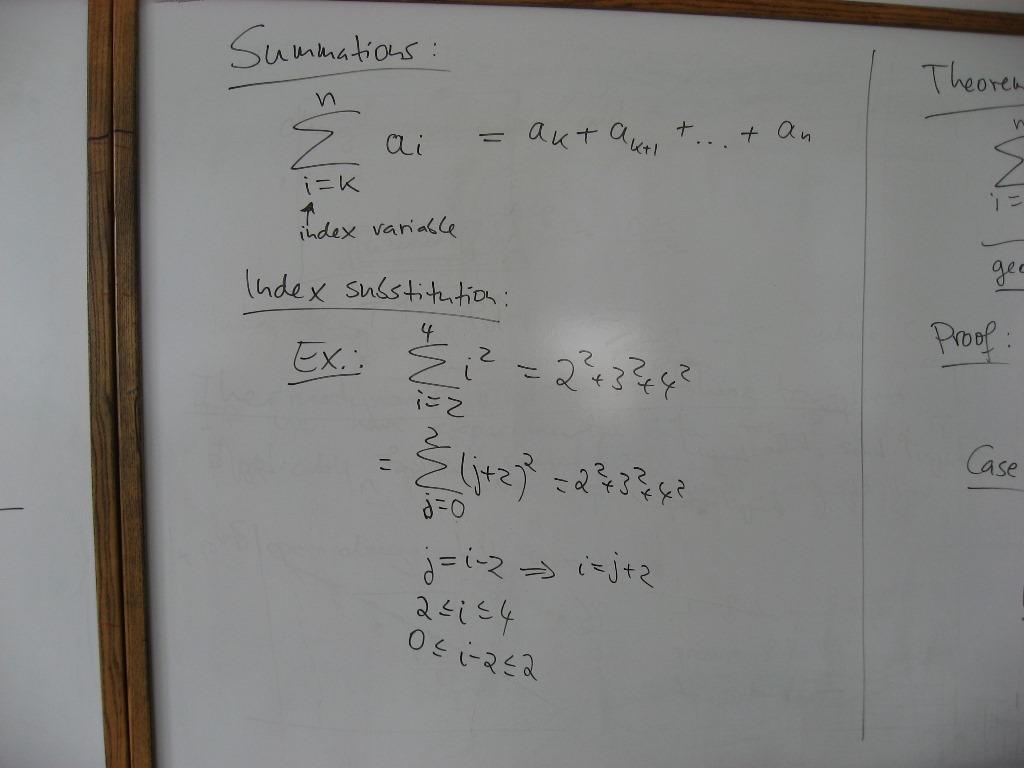 Summations:
n
∑ aᵢ = aₖ + aₖ₊₁ + ... + aₙ
i=k
↑
index variable
Index substitution:
4
Ex.: ∑ i² = 2²+3²+4²
i=2
2
= ∑ (j+2)² = 2²+3²+4²
j=0
j=i-2 ⇒ i=j+2
2≤i≤4
0≤i-2≤2
Theorem
n
∑
i=
geo
Proof:
Case